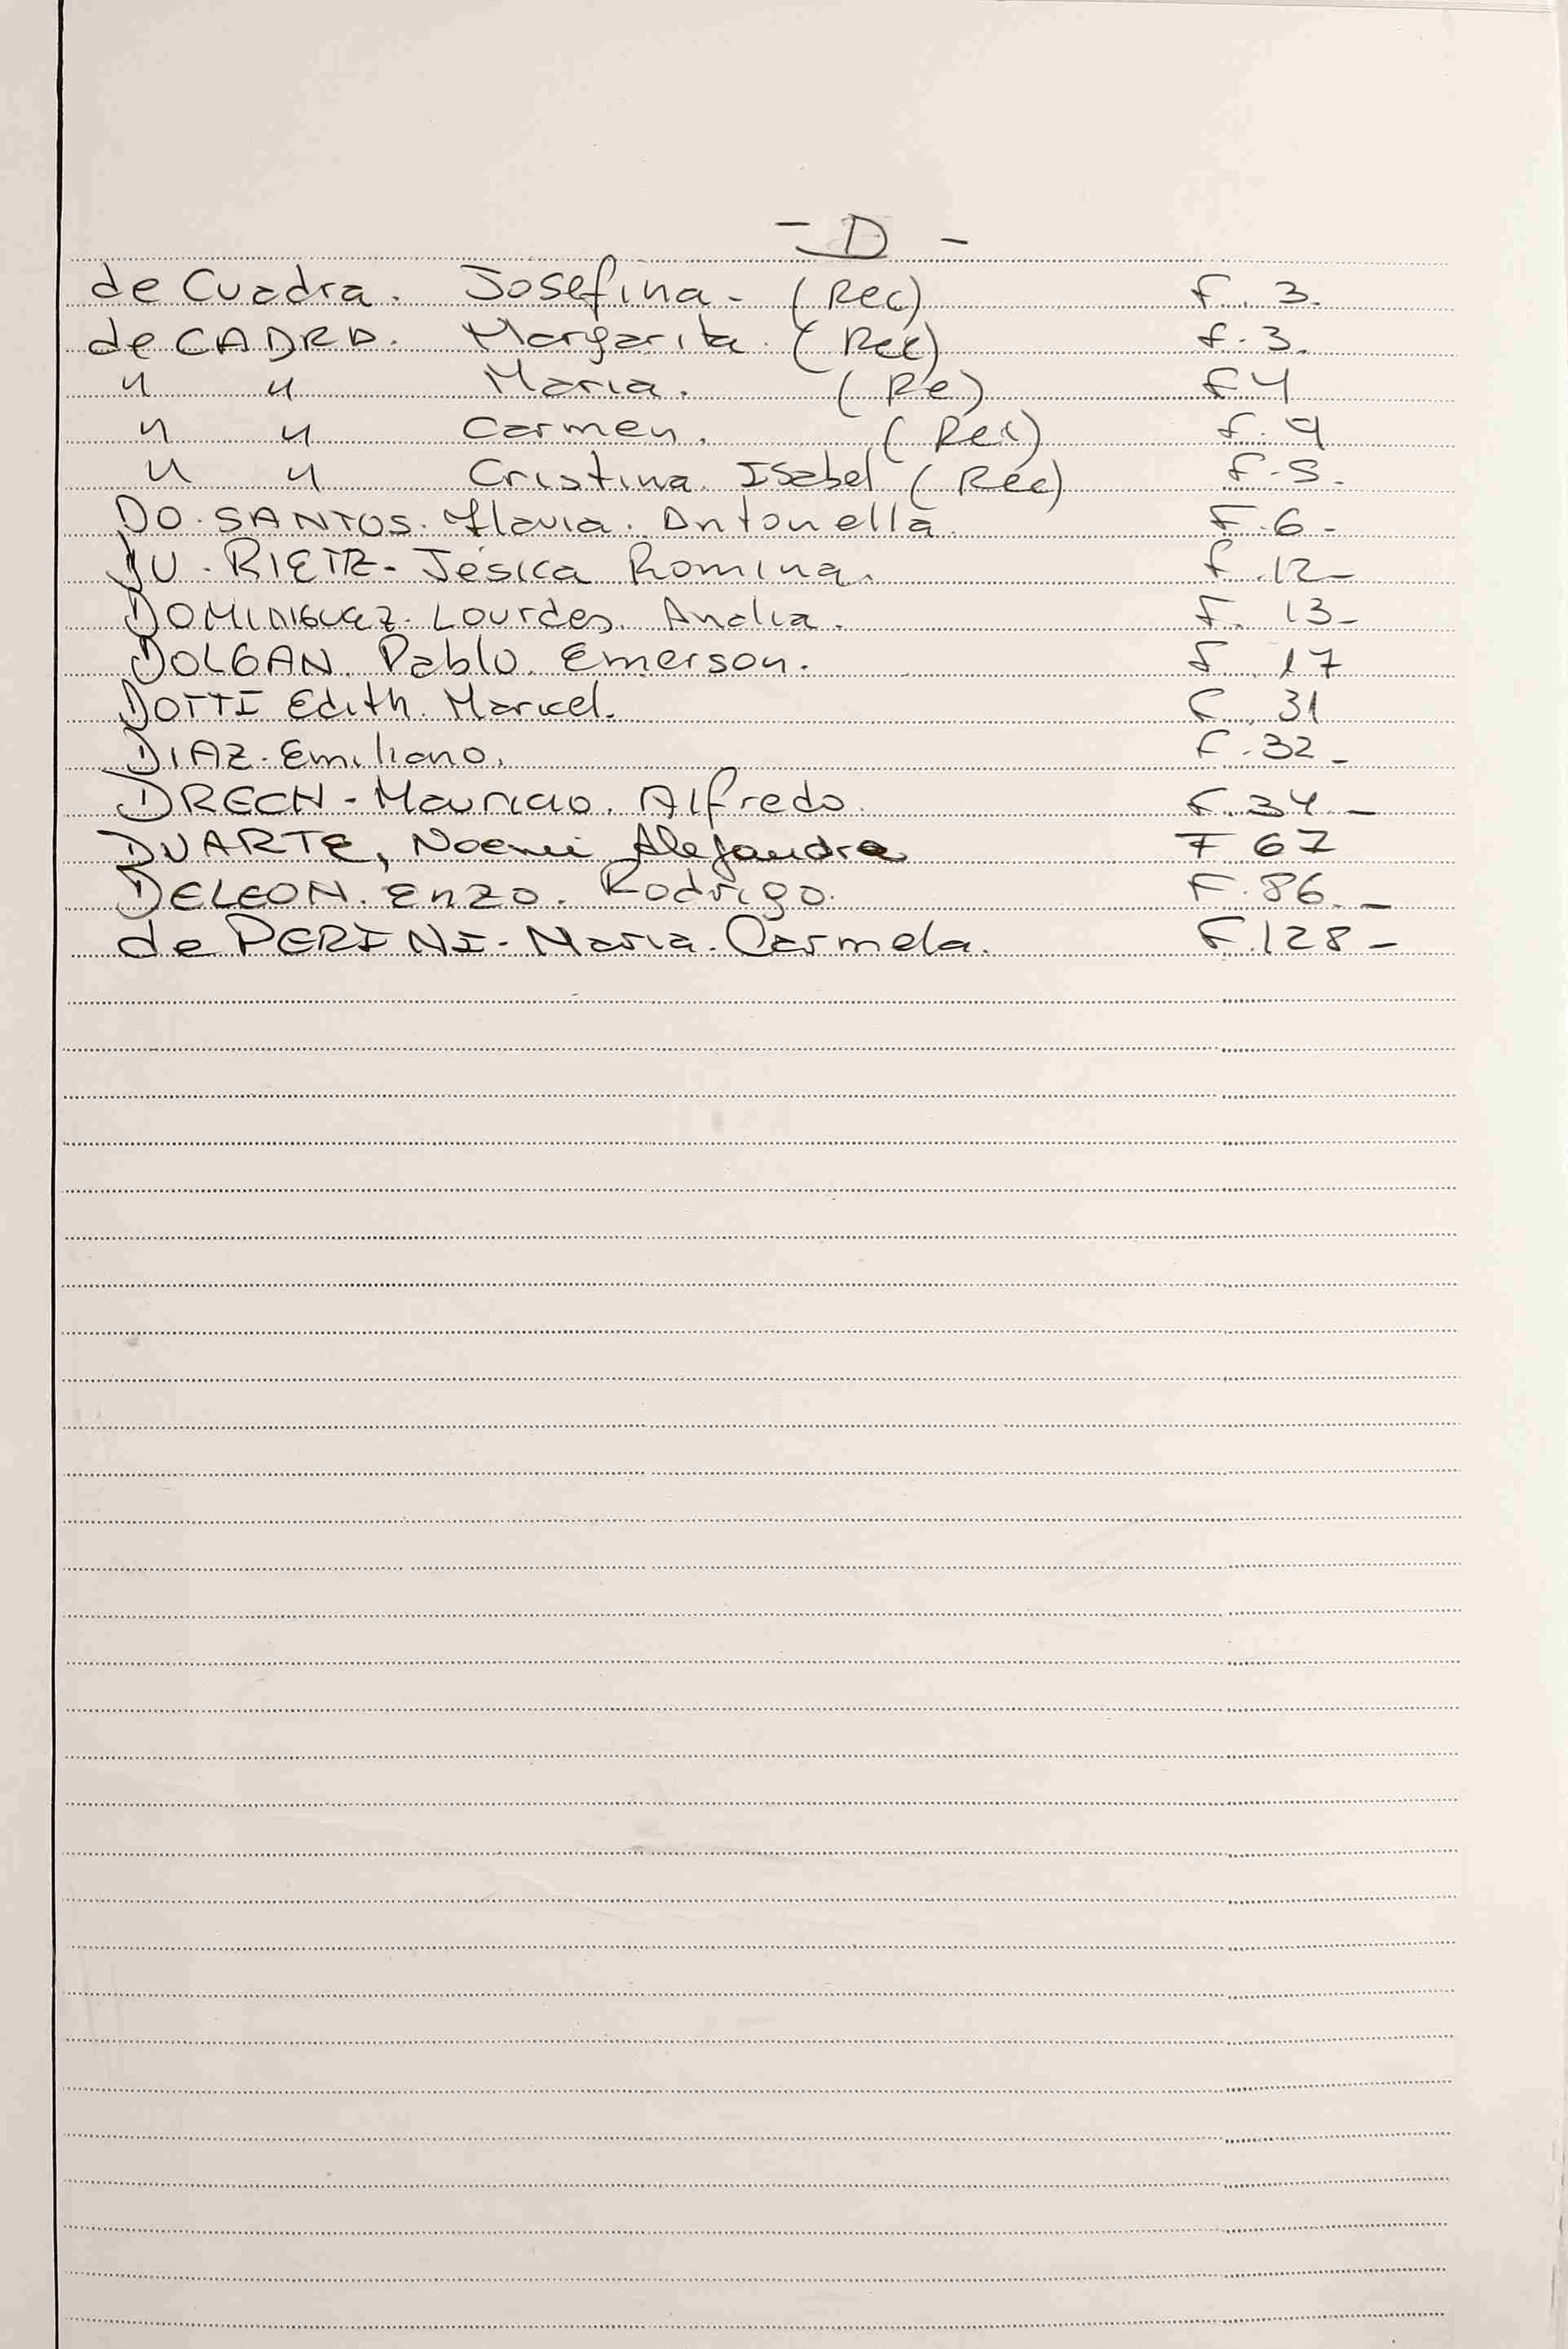 - D -
de Cuadra. Josefina - (Rec) F. 3.
de CADRA. Margarita. (Rec) f. 3.
" " Maria. (Re) F 4
" " Carmen. (Rec) f. 4
" " Cristina Isabel (Rec) F. 5.
DO. SANTOS. Flavia. Antonella. F. 6 -
DU. RIETZ - Jésica Romina. f. 12 -
DOMINIGUEZ. Lourdes. Analia. F. 13 -
DOLGAN. Pablo. Emerson. F. 17
DOTTI Edith. Maricel. F. 31
DIAZ. Emiliano. F. 32 -
DRECH - Mauricio. Alfredo. F. 34 -
DUARTE, Noemi Alejandra F 67
DELEON. Enzo. Rodrigo. F. 86 -
de PERINI - Maria. Carmela. F. 128 -